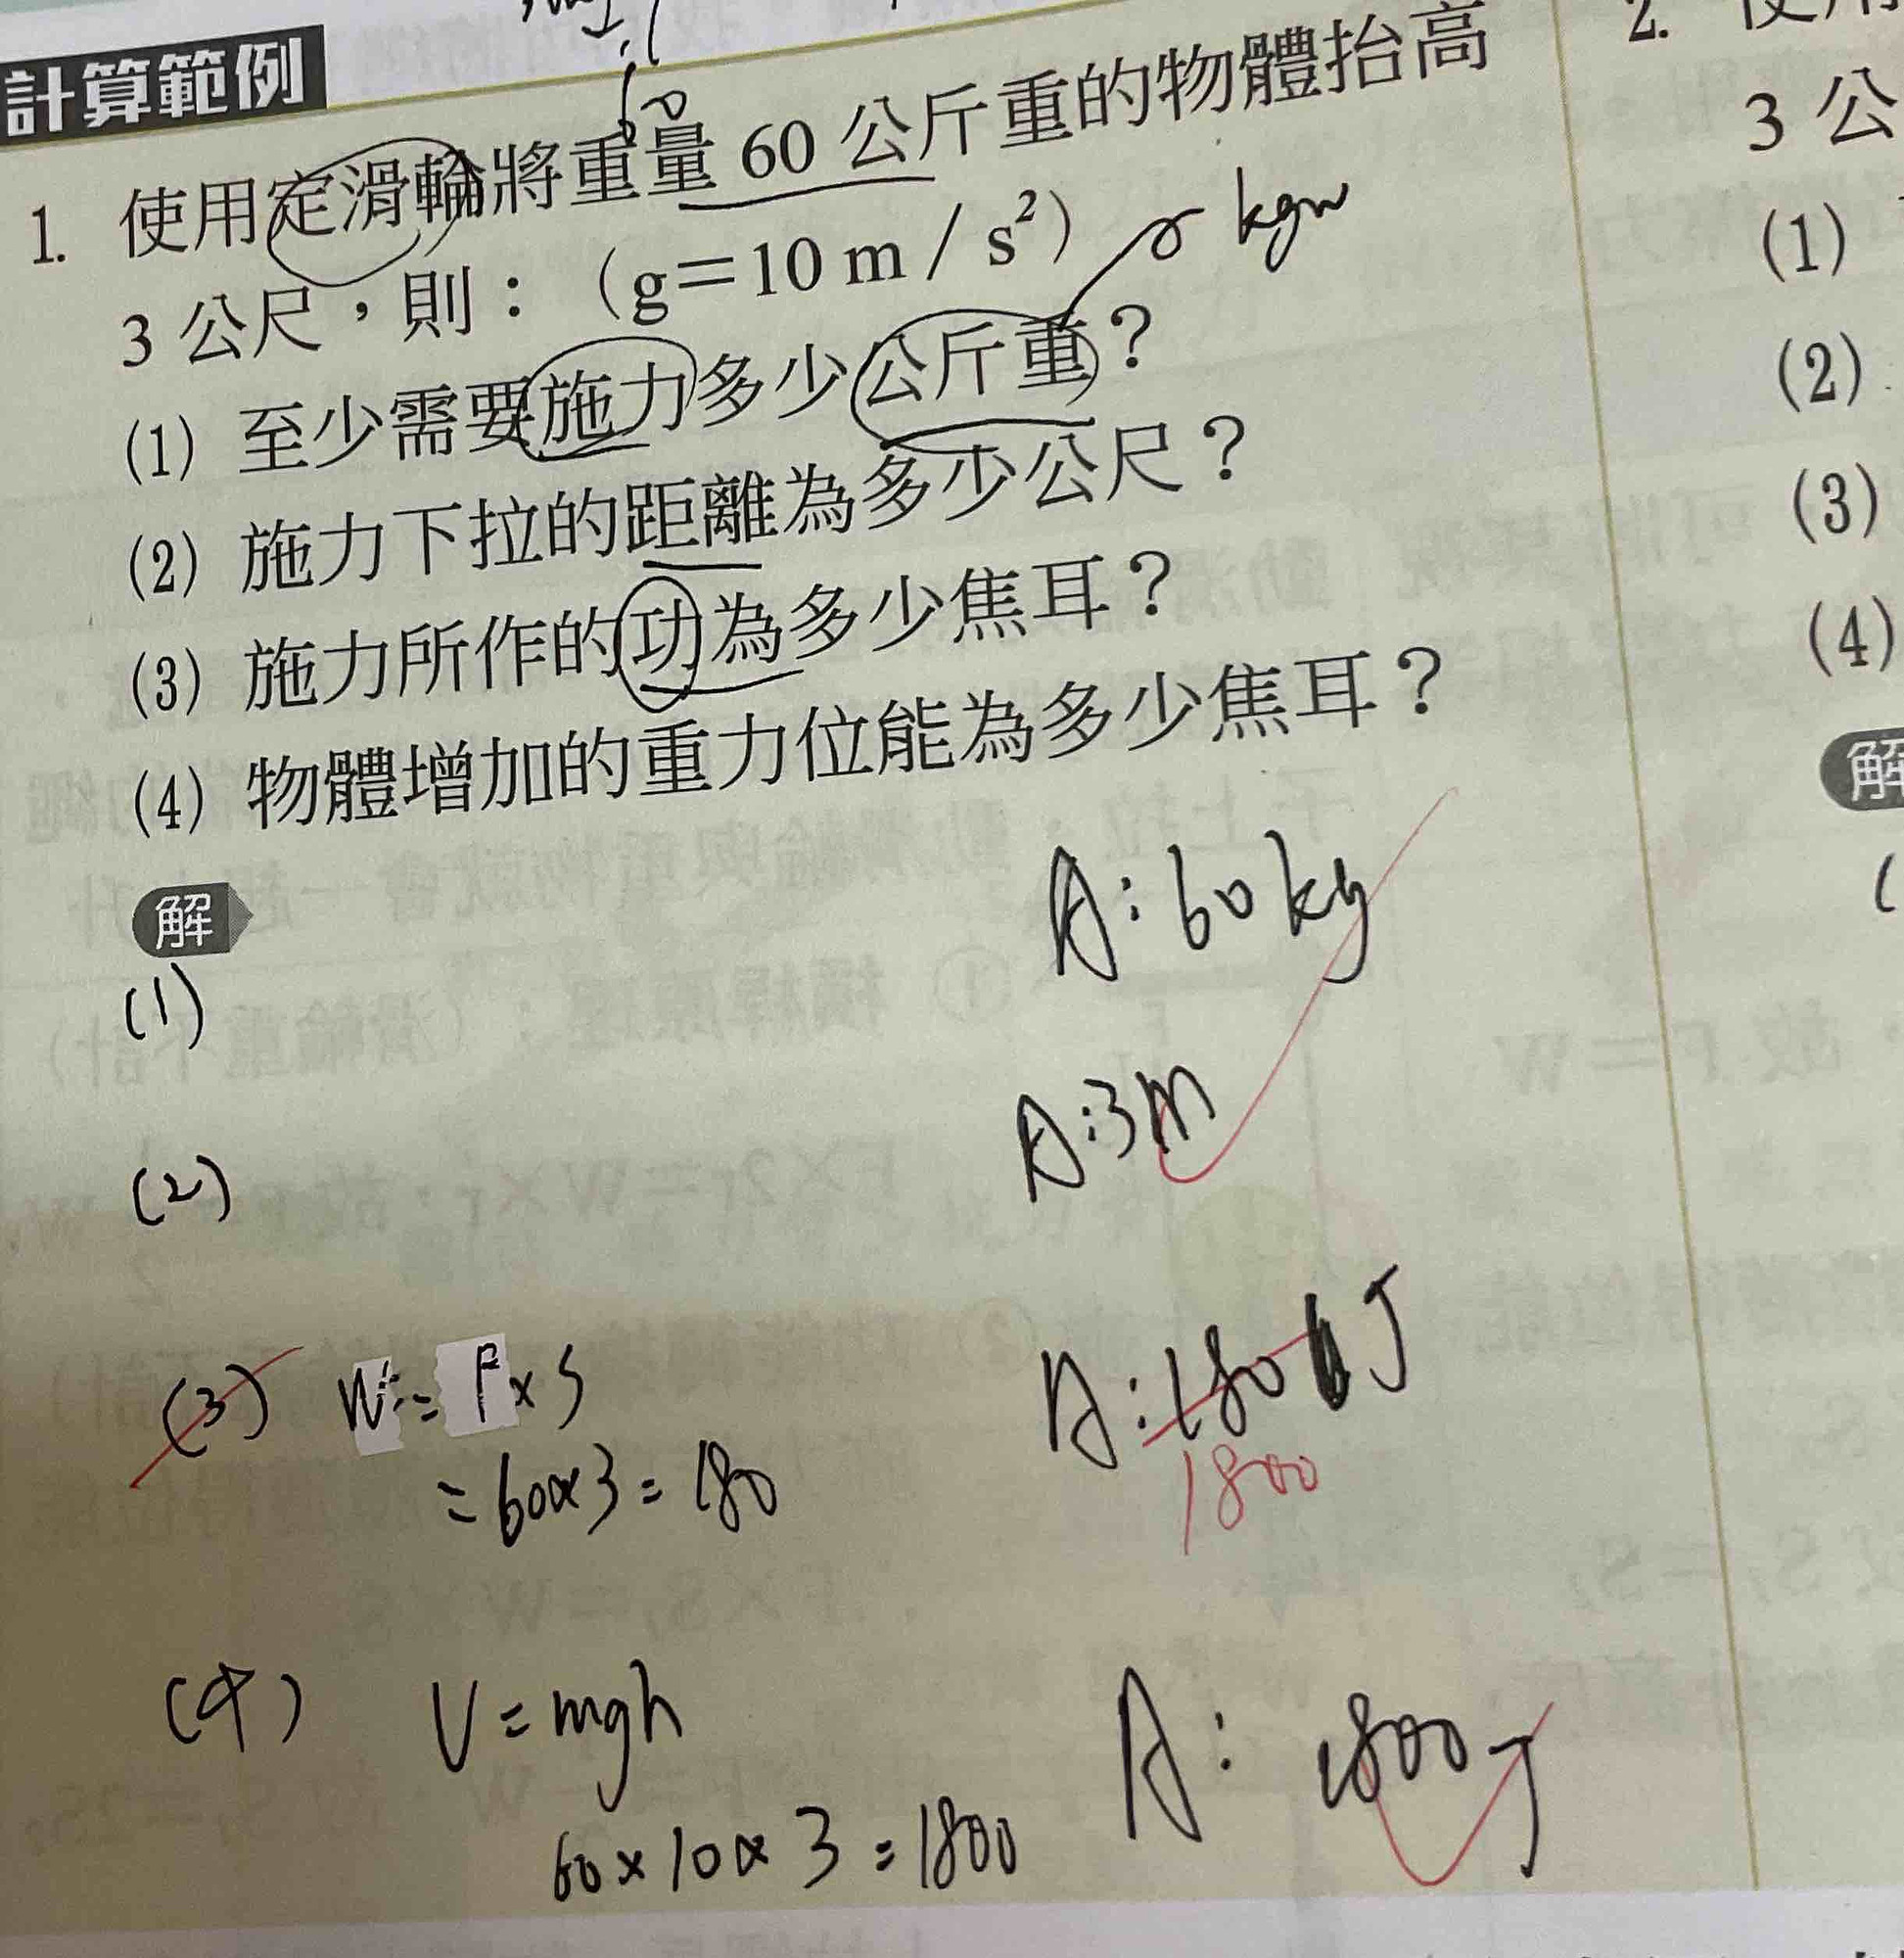 計算範例
1. 使用定滑輪將重量 60 公斤重的物體抬高
3 公尺，則：（g＝10 m / s²）
kgw
(1) 至少需要施力多少公斤重？
(2) 施力下拉的距離為多少公尺？
(3) 施力所作的功為多少焦耳？
(4) 物體增加的重力位能為多少焦耳？
解
(1) A: 60 kg
(2) A: 3m
(3) W = F × S A: 180 J
= 60 × 3 = 180
1800
(4) U = mgh A: 1800 J
60 × 10 × 3 = 1800
2.
3 公
(1)
(2)
(3)
(4)
解
(